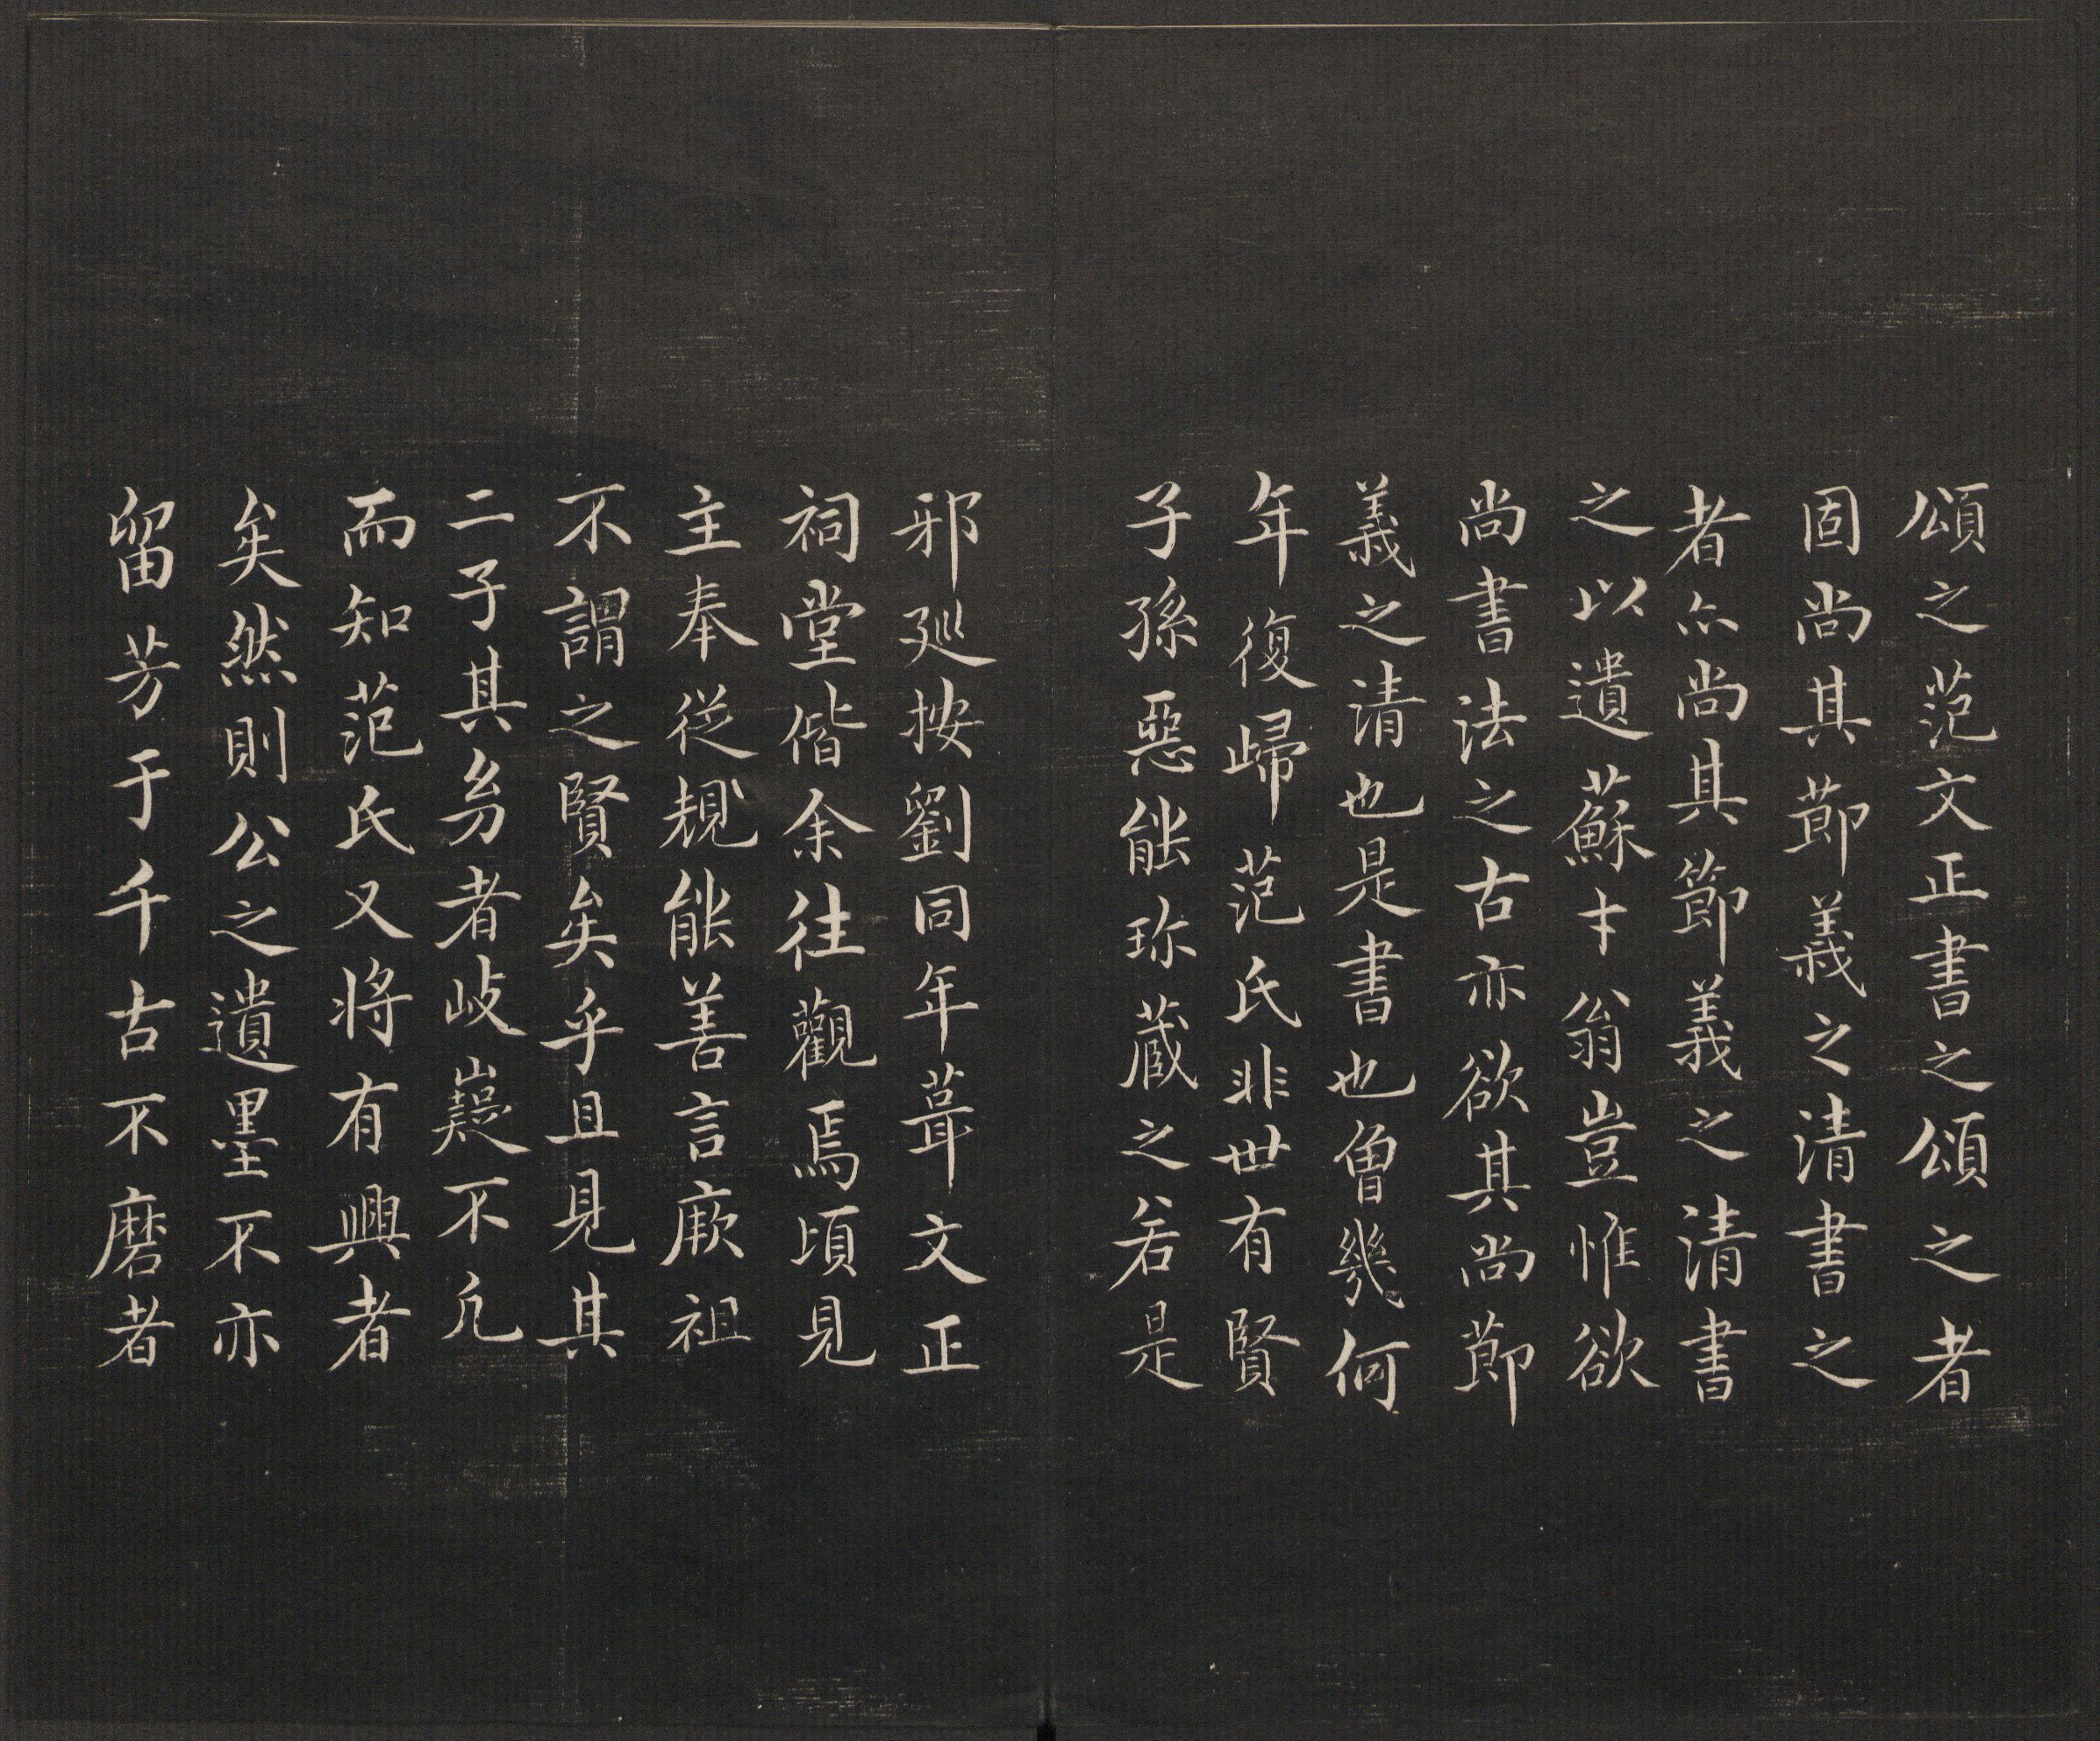 頌之范文正書之頌之者
固尚其節義之清書之
者亦尚其節義之清書
之以遺蘇才翁豈惟欲
尚書法之古亦欲其尚節
義之清也是書也曾幾何
年復歸范氏非世有賢
子孫惡能珎蔵之若是
邪廵按劉同年葺文正
祠堂偕余往觀焉頃見
主奉從規能善言厥祖
不謂之賢矣乎且見其
二子其㓜者岐嶷不凡
而知范氏又将有興者
矣然則公之遺墨不亦
留芳于千古不磨者